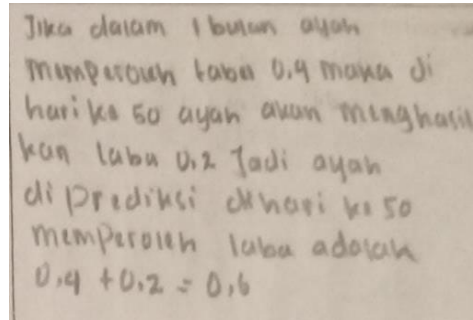 Jika dalam 1 bulan ayah
memperoleh laba 0,4 maka di
hari ke 50 ayah akan menghasil
kan laba 0,2 Jadi ayah
di prediksi dihari ke 50
memperoleh laba adalah
0,4 + 0,2 = 0,6